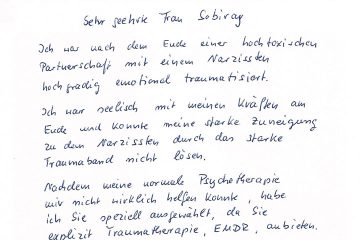 Sehr geehrte Frau Sobiray
Ich war nach dem Ende einer hochtoxischen
Partnerschaft mit einem Narzissten
hochgradig emotional traumatisiert.
Ich war seelisch mit meinen Kräften am
Ende und konnte meine starke Zuneigung
zu dem Narzissten durch das starke
Traumaband nicht lösen.
Nachdem meine normale Psychotherapie
mir nicht wirklich helfen konnte, habe
ich Sie speziell ausgewählt, da Sie
explizit Traumatherapie, EMDR, anbieten.